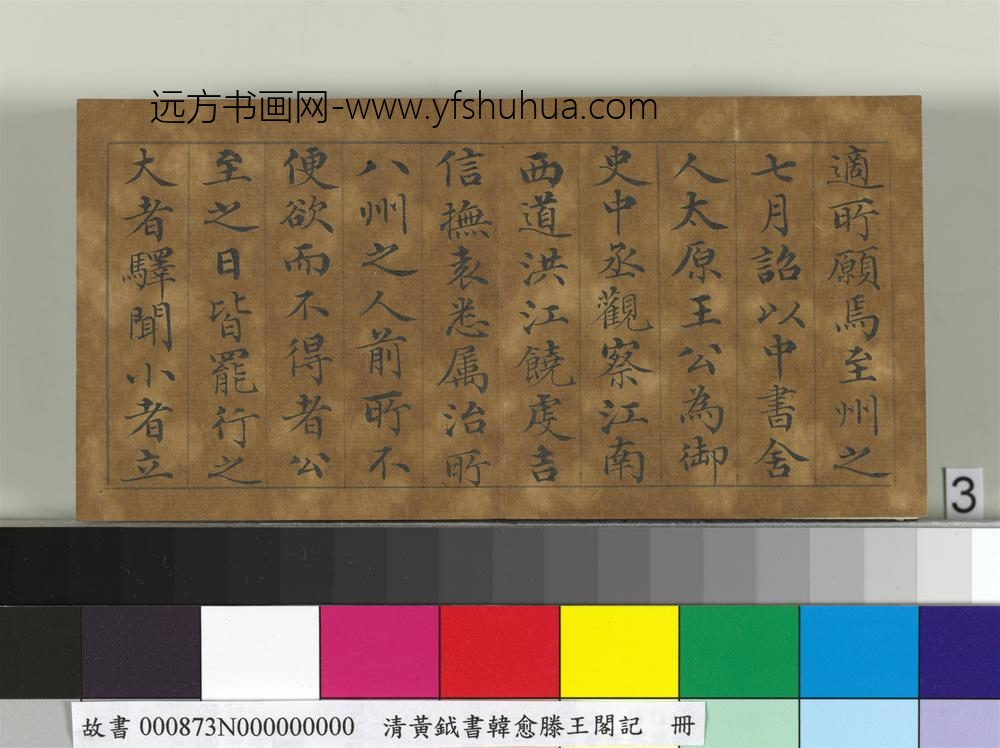 远方书画网-www.yfshuhua.com
適所願焉至州之
七月詔以中書舍
人太原王公為御
史中丞觀察江南
西道洪江饒虔吉
信撫袁悉属治所
八州之人前所不
便欲而不得者公
至之日皆罷行之
大者驛聞小者立
3
故書 000873N000000000 清黃鉞書韓愈滕王閣記 冊